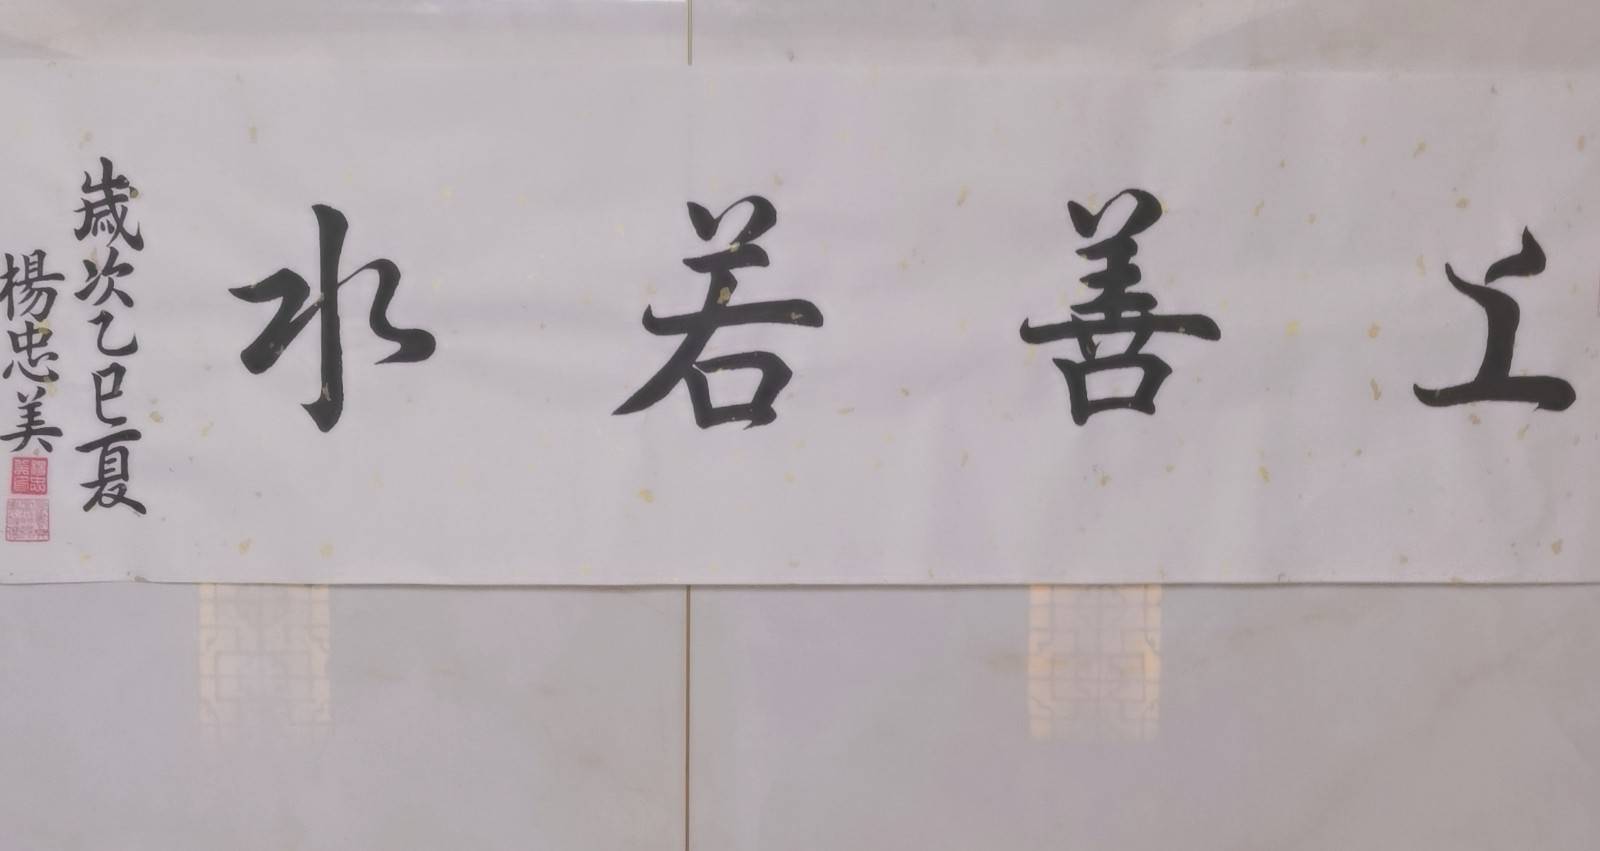 上善若水
歲次乙巳夏
楊忠美